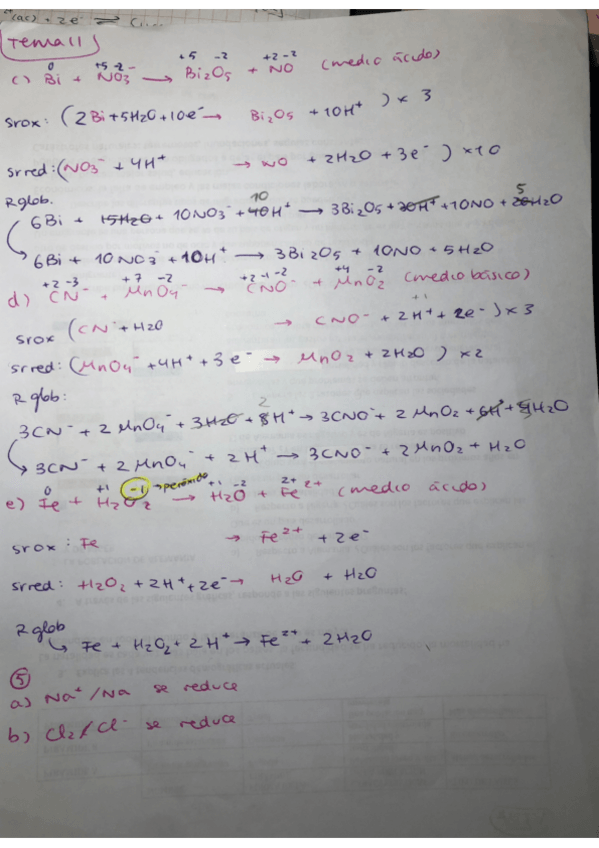 (ac) + 2e⁻ ⇌ C
Tema 11
0 +5 -2 - +5 -2 +2 -2
c) Bi + NO3 → Bi2O5 + NO (medio ácido)
srox: (2Bi + 5H2O + 10e⁻ → Bi2O5 + 10H⁺) × 3
sr red: (NO3⁻ + 4H⁺ → NO + 2H2O + 3e⁻) × 10
10 5
Rglob.
6Bi + 15H2O + 10NO3⁻ + 40H⁺ → 3Bi2O5 + 30H⁺ + 10NO + 20H2O
6Bi + 10NO3⁻ + 10H⁺ → 3Bi2O5 + 10NO + 5H2O
+2 -3 +7 -2 +2 -1 -2 +4 -2
d) CN⁻ + MnO4⁻ → CNO⁻ + MnO2 (medio básico)
+1
srox (CN⁻ + H2O → CNO⁻ + 2H⁺ + 2e⁻) × 3
sr red: (MnO4⁻ + 4H⁺ + 3e⁻ → MnO2 + 2H2O) × 2
R glob:
2
3CN⁻ + 2MnO4⁻ + 3H2O + 8H⁺ → 3CNO⁻ + 2MnO2 + 6H⁺ + 4H2O
3CN⁻ + 2MnO4⁻ + 2H⁺ → 3CNO⁻ + 2MnO2 + H2O
0 +1 -1 → peróxido +1 -2 2+
e) Fe + H2O2 → H2O + Fe²⁺ (medio ácido)
srox: Fe → Fe²⁺ + 2e⁻
sr red: H2O2 + 2H⁺ + 2e⁻ → H2O + H2O
R glob
Fe + H2O2 + 2H⁺ → Fe²⁺ + 2H2O
⑤
a) Na⁺/Na se reduce
b) Cl2/Cl⁻ se reduce